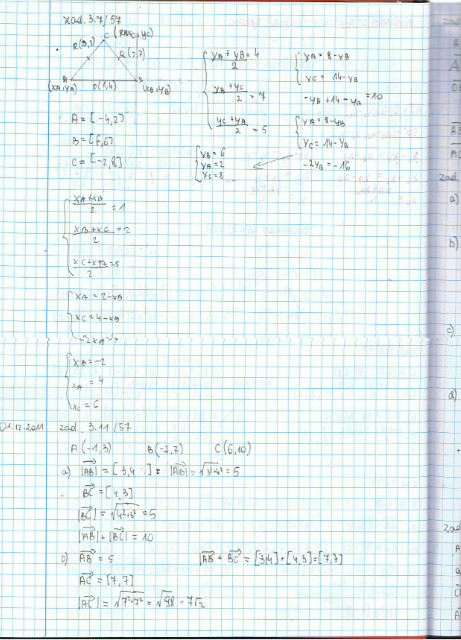 zad. 3.7/57
C (xC, yC)
R(3,5) Q(2,7)
A B
(xA, yA) P(1,4) (xB, yB)
A = [-4,2]
B = [6,6]
C = [-2,8]
yA + yB / 2 = 4
yB + yC / 2 = 7
yC + yA / 2 = 5
yA = 8 - yB
yC = 14 - yB
-yB + 14 - yB = 10
yA = 8 - yB
yC = 14 - yB
-2yB = -16
yB = 6
yA = 2
yC = 8
xA + xB / 2 = 1
xB + xC / 2 = 2
xC + xA / 2 = 5
xA = 2 - xB
xC = 4 - xB
xB = -2
xA = 4
xC = 6
01.12.2011 zad. 3.11/57
A(-1,3) B(-2,7) C(6,10)
a) |AB| = [3,4] |AB| = = 5
BC = [4,3]
|BC| = √4²+3² = 5
|AB| + |BC| = 10
b) AB = 5 |AB + BC = [3,4] + [4,3] = [7,7]
AC = [7,7]
|AC| = √7²+7² = √98 = 7√2
zad
a)
b)
c)
d)
zad